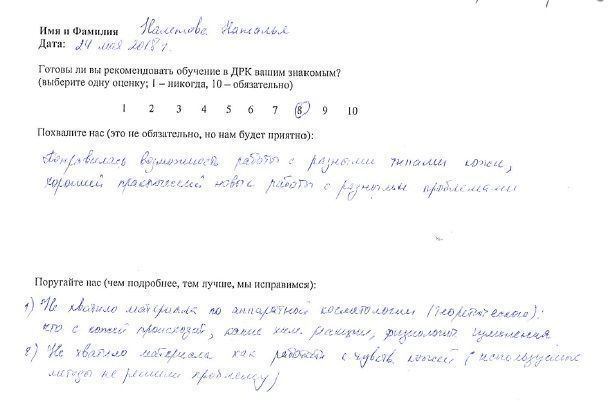 Имя и Фамилия Налетова Наталья
Дата: 24 мая 2018 г.
Готовы ли вы рекомендовать обучение в ДРК вашим знакомым?
(выберите одну оценку; 1 – никогда, 10 – обязательно)
1 2 3 4 5 6 7 8 9 10
Похвалите нас (это не обязательно, но нам будет приятно):
Понравилась возможность работы с разными типами кожи,
хороший практический навык работы с разными проблемами
Поругайте нас (чем подробнее, тем лучше, мы исправимся):
1) Не хватило материала по аппаратной косметологии (теоретического):
что с кожей происходит, какие хим. реакции, физиологич. изменения
2) Не хватило материала как работать с чувств. кожей (используемые
методы не решили проблему)